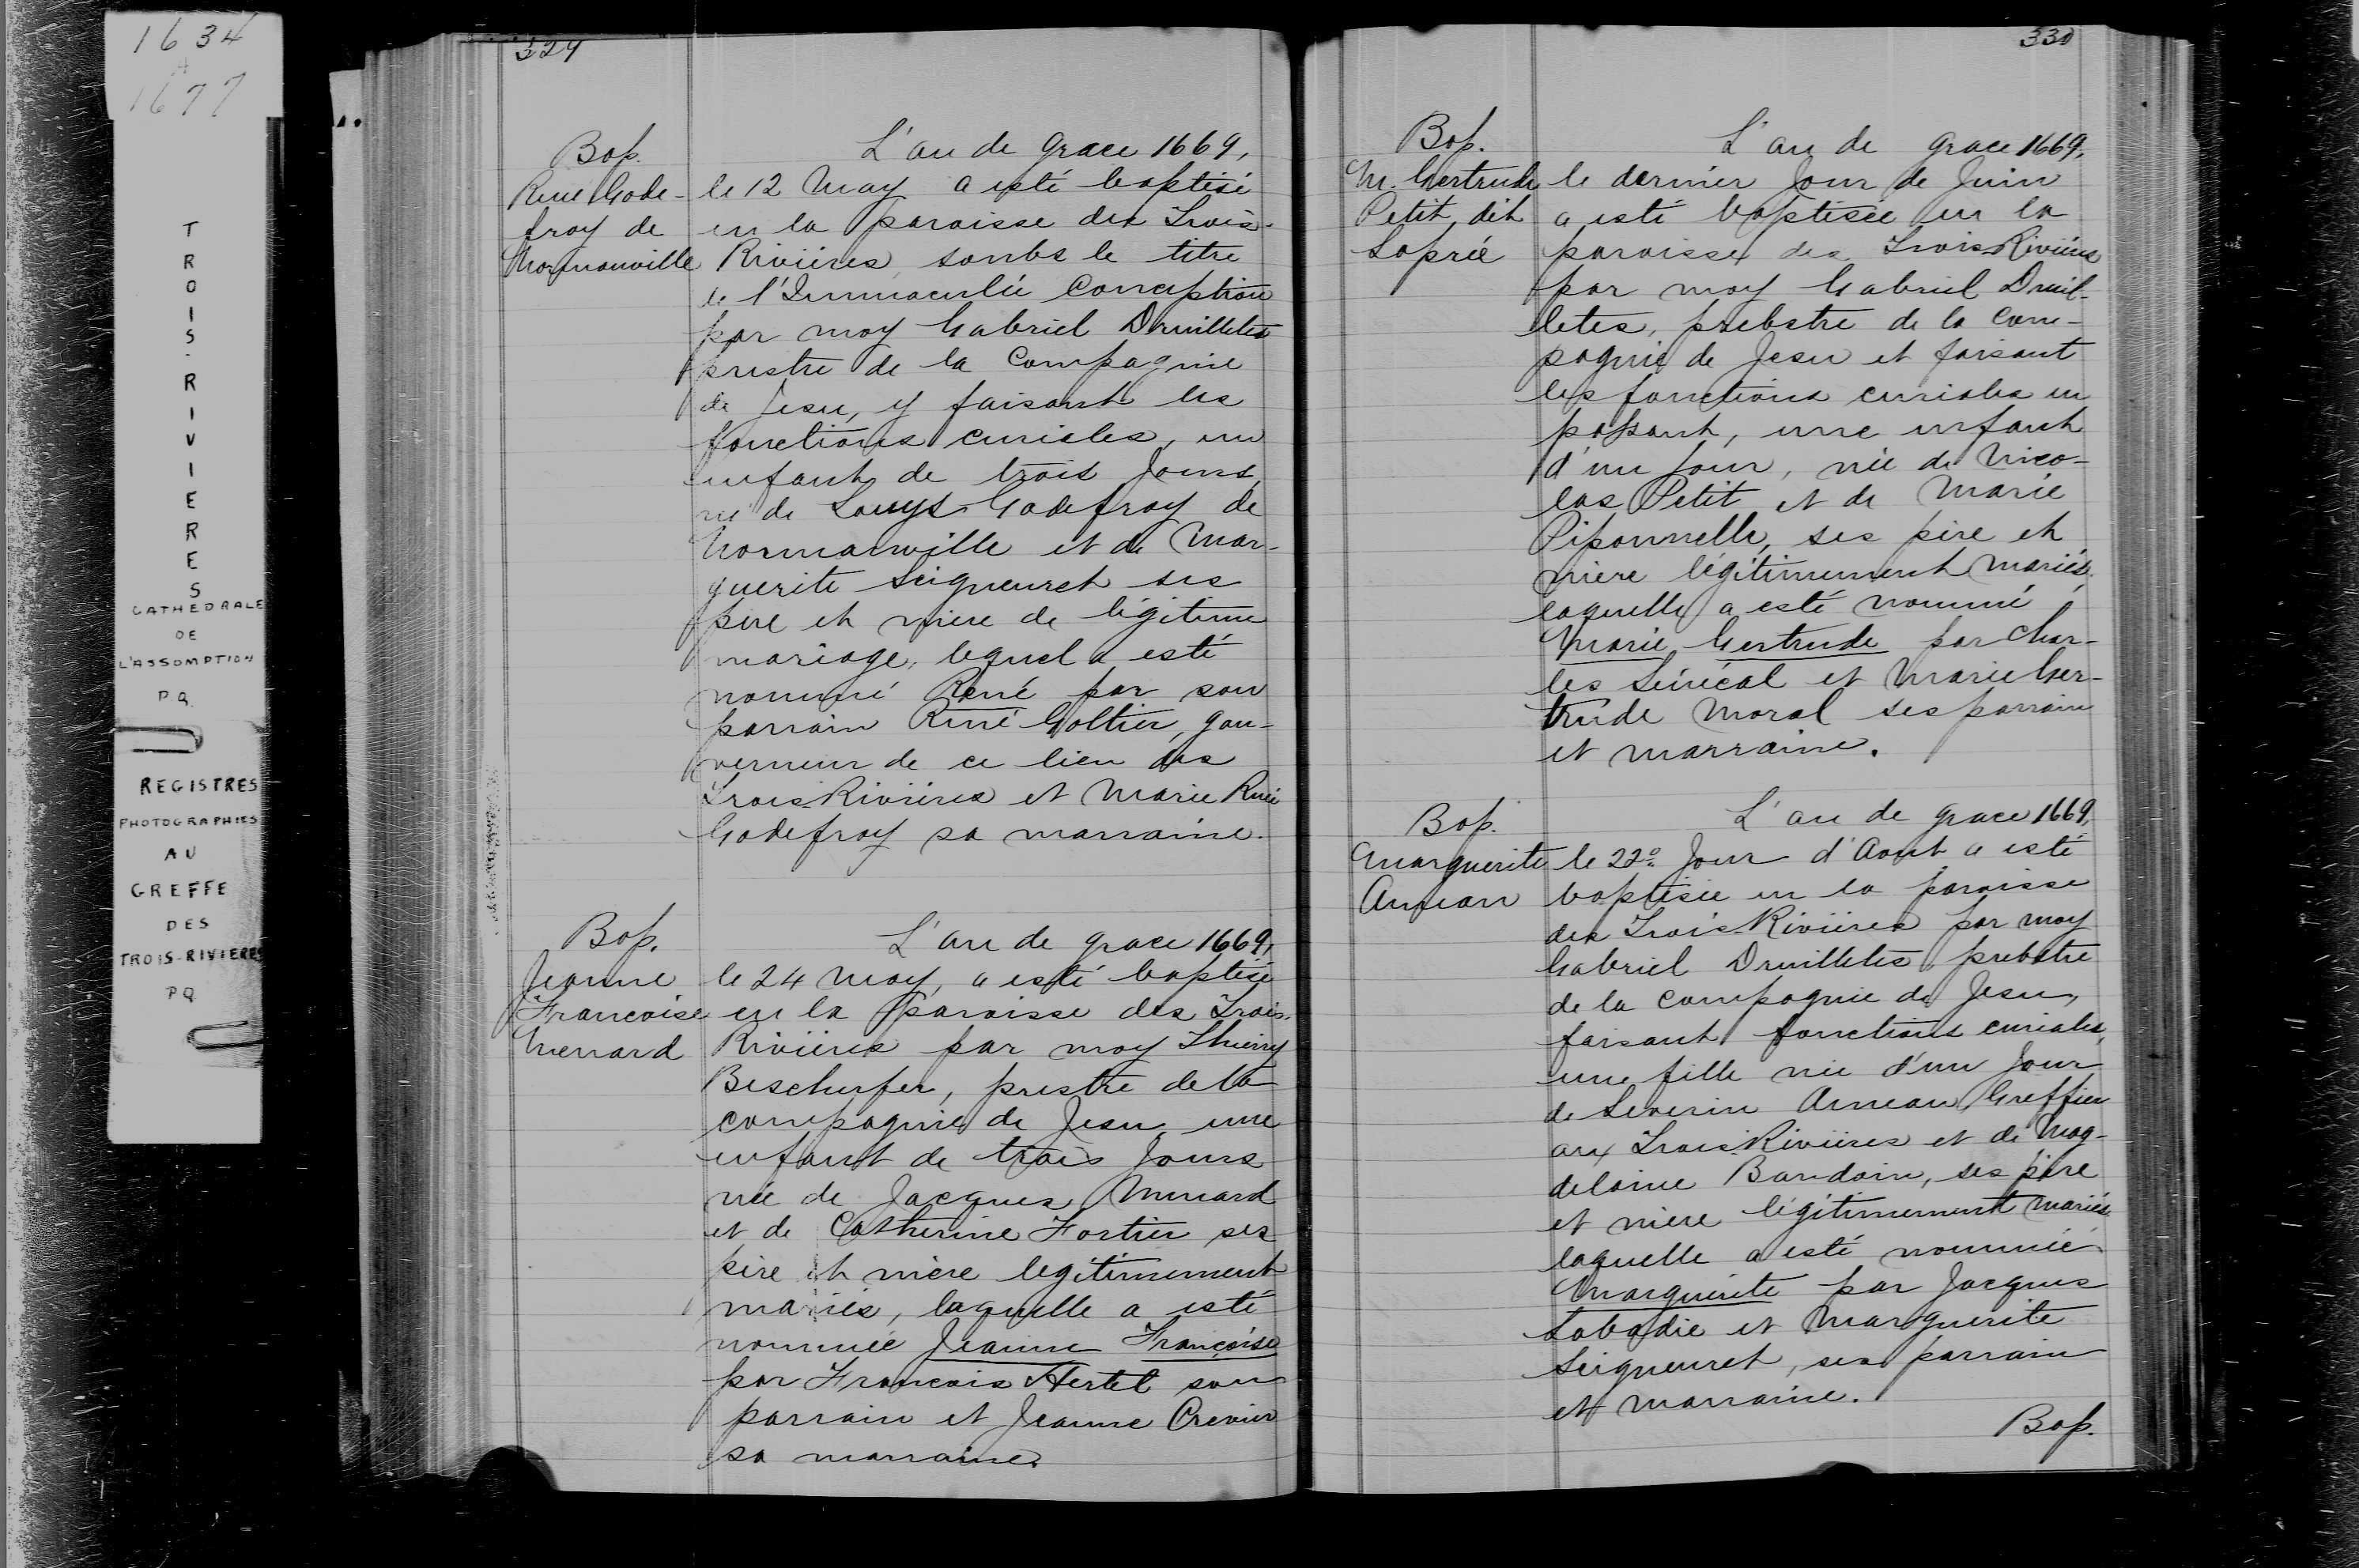 1634
à
1677
TROIS-RIVIERES
CATHEDRALE
DE
L'ASSOMPTION
P Q
REGISTRES
PHOTOGRAPHIES
AU
GREFFE
DES
TROIS-RIVIERES
P Q
329
Bap.
René Gode-
froy de
Normanville
L'an de grace 1669,
le 12 May a esté baptisé
en la paroisse des Trois-
Rivières soubs le titre
de l'Immaculée Conception
par moy Gabriel Druilletes
prestre de la Compagnie
de Jesu, y faisant les
fonctions curiales, un
enfant de trois Jours,
né de Louys Godefroy de
Normanville et de Mar-
guerite Seigneuret ses
père et mère de légitime
mariage, lequel a esté
nommé René par son
parrain René Goltier, gou-
verneur de ce lieu des
Trois Rivières et Marie René
Godefroy sa marraine.
Bap.
Jeanne
Françoise
Menard
L'an de grace 1669,
le 24 May, a esté baptisé
en la Paroisse des Trois-
Rivières par moy Thierry
Beschefer, prestre de la
compagnie de Jesu, une
enfant de trois Jours
née de Jacques Menard
et de Catherine Fortier ses
père et mère legitimement
mariés, laquelle a esté
nommée Jeanne Françoise
par François Hertel son
parrain et Jeanne Crevier
sa marraine.
330
Bap.
M. Gertrude
Petit dit
Laprée
L'an de grace 1669,
le dernier Jour de Juin
a esté baptisée en la
paroisse des Trois-Rivières
par moy Gabriel Druil-
letes, prebstre de la Com-
pagnie de Jesu et faisant
les fonctions curiales en
passant, une enfant
d'un Jour, née de Nico-
las Petit et de Marie
Piponnelle, ses père et
mère légitimement mariés,
laquelle a esté nommé
Marie Gertrude par Char-
les Sénécal et Marie Ger-
trude Moral ses parrain
et marraine.
Bap.
Marguerite
Ameau
L'an de grace 1669,
le 22e Jour d'Aout a esté
baptisée en la paroisse
des Trois-Rivières par moy
Gabriel Druilletes prebstre
de la compagnie de Jesu,
faisant fonctions curiales,
une fille née d'un Jour
de Severin Ameau, Greffier
aux Trois Rivières et de Mag-
delaine Baudoin, ses père
et mère légitimement mariés
laquelle a esté nommée
Marguerite par Jacques
Labadie et Marguerite
Seigneuret, ses parrain
et marraine.
Bap.